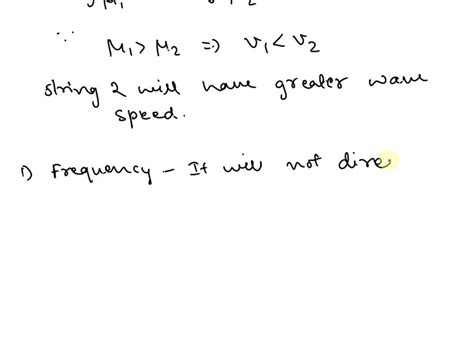 ∵ μ₁ > μ₂ ⇒ v₁ < v₂
string 2 will have greater wave
speed.
1) Frequency – It will not dire